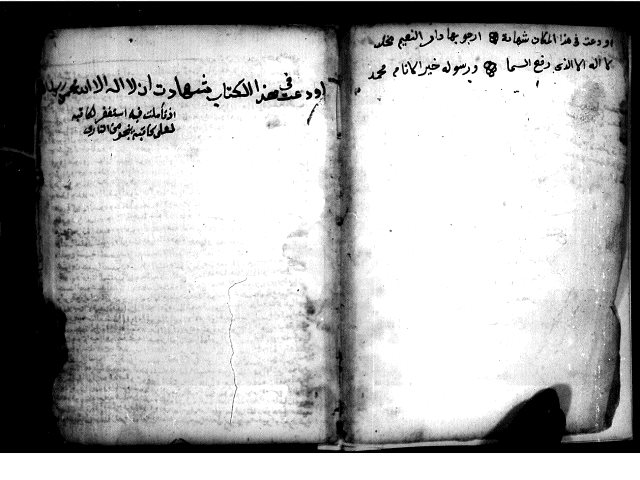 اودعت في هذا المكان شهادة ارجو بها دار النعيم مخلد
لا اله الا الذي رفع السما ورسوله خير الانام محمد
اودعت في هذا الكتاب شهادت ان لا اله الا الله
اذ تأملت فيه استغفر لكاتبه
لعل كاتبه ينجو من النار